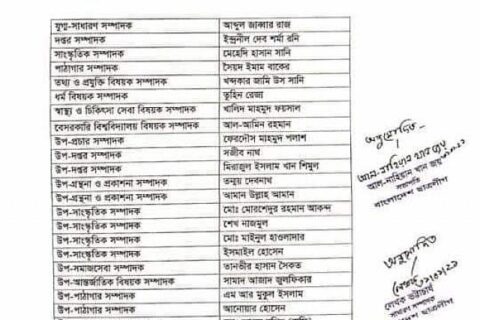 যুগ্ম-সাধারণ সম্পাদক আব্দুল জাব্বার রাজ
দপ্তর সম্পাদক ইন্দ্রনীল দেব শর্মা রনি
সাংস্কৃতিক সম্পাদক মেহেদি হাসান সানি
পাঠাগার সম্পাদক সৈয়দ ইমাম বাকের
তথ্য ও প্রযুক্তি বিষয়ক সম্পাদক খন্দকার জামি উস সানি
ধর্ম বিষয়ক সম্পাদক তুহিন রেজা
স্বাস্থ্য ও চিকিৎসা সেবা বিষয়ক সম্পাদক খালিদ মাহমুদ ফয়সাল
বেসরকারি বিশ্ববিদ্যালয় বিষয়ক সম্পাদক আল-আমিন রহমান
উপ-প্রচার সম্পাদক ফেরদৌস মাহমুদ পলাশ
উপ-দপ্তর সম্পাদক সজীব নাথ
উপ-দপ্তর সম্পাদক মিরাজুল ইসলাম খান শিমুল
উপ-গ্রন্থনা ও প্রকাশনা সম্পাদক তন্ময় দেবনাথ
উপ-গ্রন্থনা ও প্রকাশনা সম্পাদক আমান উল্লাহ আমান
উপ-সাংস্কৃতিক সম্পাদক মোঃ মোরশেদুর রহমান আকন্দ
উপ-সাংস্কৃতিক সম্পাদক শেখ নাজমুল
উপ-সাংস্কৃতিক সম্পাদক মোঃ মাইনুল হাওলাদার
উপ-সাংস্কৃতিক সম্পাদক ইসমাইল হোসেন
উপ-সমাজসেবা সম্পাদক তানভীর হাসান সৈকত
উপ-আন্তর্জাতিক বিষয়ক সম্পাদক সামাদ আজাদ জুলফিকার
উপ-পাঠাগার সম্পাদক এম আর মুকুল ইসলাম
উপ-পাঠাগার সম্পাদক আনোয়ার হোসেন
অনুমোদিত-
আল-নাহিয়ান খান জয়
সভাপতি
বাংলাদেশ ছাত্রলীগ
অনুমোদিত
লেখক ভট্টাচার্য
সাধারণ সম্পাদক
বাংলাদেশ ছাত্রলীগ